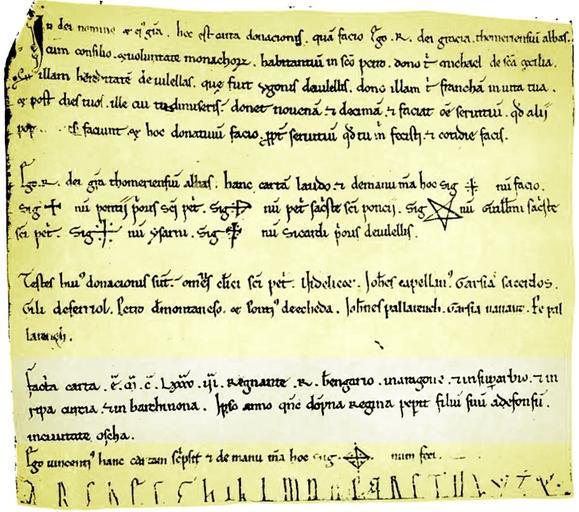 In dei nomine et ei' gra. hoc est carta donacionis. quã facio Ego .R. dei gracia. thomeriensiũ abbas.
cum consilio. & voluntate monachoꝝ. habitantiũ in scõ petro. dono t̃ michael de scã cecilia.
illam hereditatẽ de vilellas. que fuit ygonis de vilellis. dono illam t̃ franchã in vita tua.
& post dies tuos. ille cui tu dimiseris. donet novenã & decimã. & faciat oẽ servitiũ qd alii
faciunt. & hoc donativũ facio. ppt servitiũ qd tu m̃ fecisti. & cotidie facis.
Ego .R. dei gra thomeriensiũ abbas. hanc cartã laudo & de manu mẽa hoc sig nũ facio.
Sig nũ poncii pous sci pet. Sig nũ pet sacste sci poncii. Sig nũ Guillmi sacste
sci pet. Sig nũ ysarni. Sig nũ Sicardi pous de vilellis.
Testes hui' donacionis sũt. oms clici sci pet. Videlicet. Johes capellan'. Garsia sacerdos.
Gili deferriol. Petro d montaneso. & Ponti' de echeda. Johnes pallaruech. Garsia navarr. Pe pal
laruech.
facta carta .ẽ. m̃. c̃. Lxxxv. iii. Regnante .R. berengario. in aragone. & in suprarbio. & in
ripa curcia. & in barchinona. Ipso anno qñc dõpna regina pepit filiũ suũ adefonsũ.
in civitate oscha.
Ego vincenti' hanc cartam scpsit & de manu mẽa hoc sig num feci.